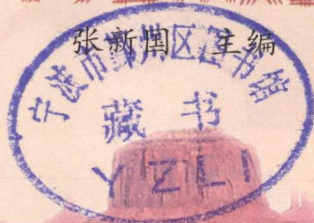 张新国 主编
宁波市鄞州区图书馆
藏书
YZLI